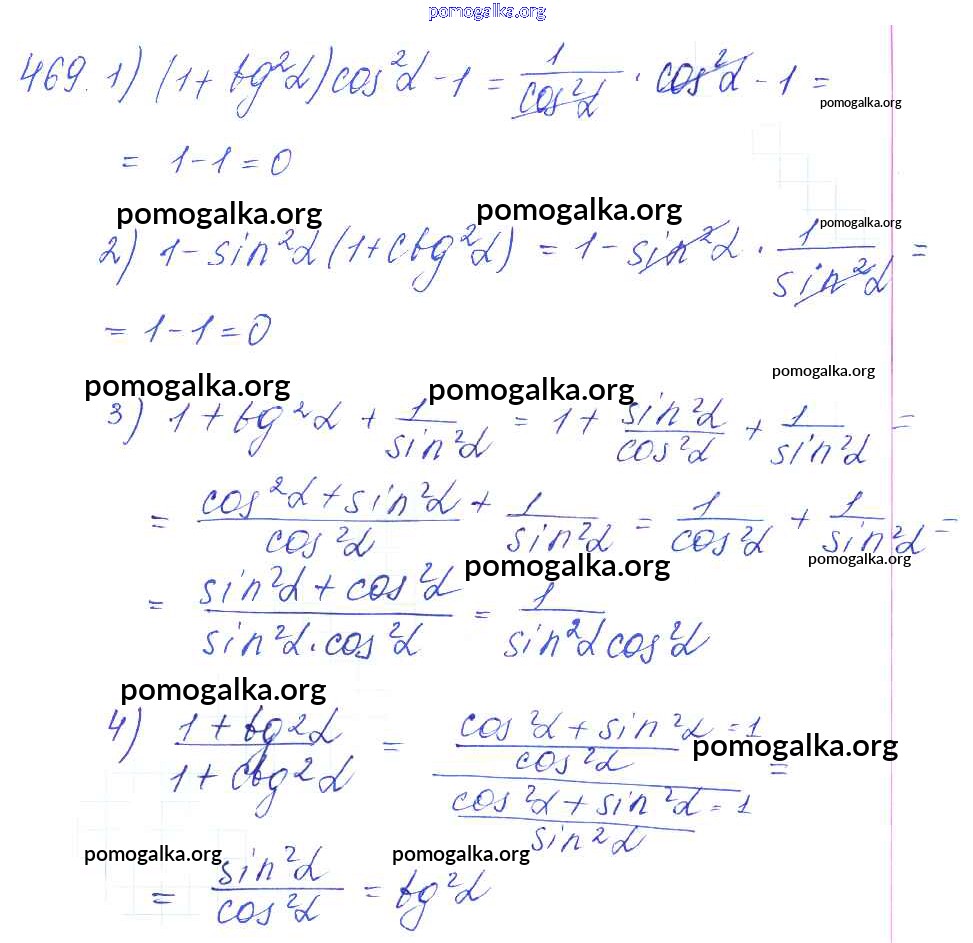 pomogalka.org
469. 1) (1 + tg²α) cos²α - 1 = 1/cos²α · cos²α - 1 =
pomogalka.org
= 1 - 1 = 0
pomogalka.org pomogalka.org
pomogalka.org
2) 1 - sin²α (1 + ctg²α) = 1 - sin²α · 1/sin²α =
= 1 - 1 = 0
pomogalka.org
pomogalka.org pomogalka.org
3) 1 + tg²α + 1/sin²α = 1 + sin²α/cos²α + 1/sin²α =
= (cos²α + sin²α)/cos²α + 1/sin²α = 1/cos²α + 1/sin²α =
pomogalka.org pomogalka.org
= (sin²α + cos²α)/(sin²α · cos²α) = 1/(sin²α cos²α)
pomogalka.org
4) (1 + tg²α)/(1 + ctg²α) = ((cos²α + sin²α = 1)/cos²α)/((cos²α + sin²α = 1)/sin²α) =
pomogalka.org
pomogalka.org pomogalka.org
= sin²α/cos²α = tg²α